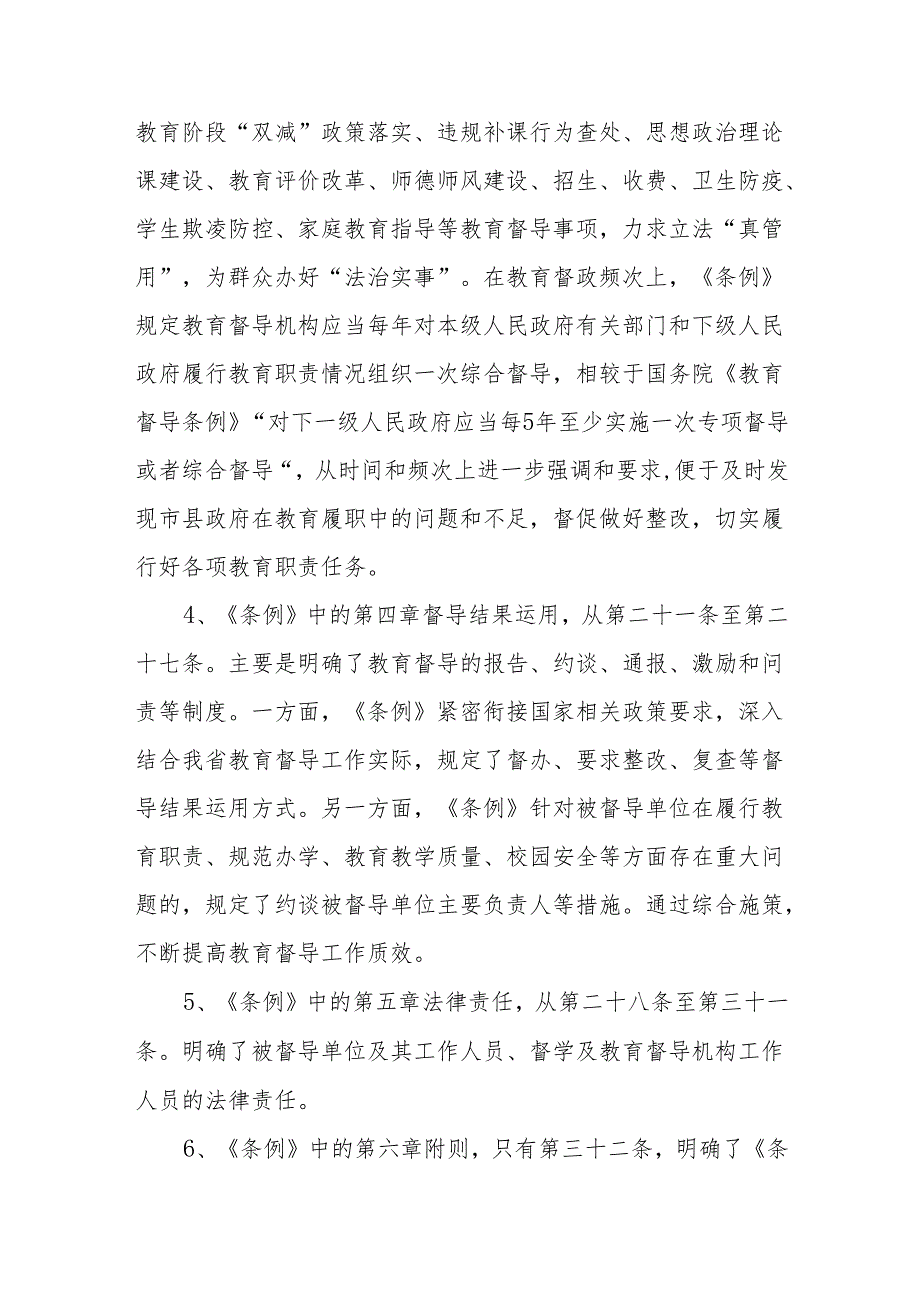 教育阶段“双减”政策落实、违规补课行为查处、思想政治理论
课建设、教育评价改革、师德师风建设、招生、收费、卫生防疫、
学生欺凌防控、家庭教育指导等教育督导事项，力求立法“真管
用”，为群众办好“法治实事”。在教育督政频次上，《条例》
规定教育督导机构应当每年对本级人民政府有关部门和下级人民
政府履行教育职责情况组织一次综合督导，相较于国务院《教育
督导条例》“对下一级人民政府应当每5年至少实施一次专项督导
或者综合督导“，从时间和频次上进一步强调和要求,便于及时发
现市县政府在教育履职中的问题和不足，督促做好整改，切实履
行好各项教育职责任务。
4、《条例》中的第四章督导结果运用，从第二十一条至第二
十七条。主要是明确了教育督导的报告、约谈、通报、激励和问
责等制度。一方面，《条例》紧密衔接国家相关政策要求，深入
结合我省教育督导工作实际，规定了督办、要求整改、复查等督
导结果运用方式。另一方面，《条例》针对被督导单位在履行教
育职责、规范办学、教育教学质量、校园安全等方面存在重大问
题的，规定了约谈被督导单位主要负责人等措施。通过综合施策，
不断提高教育督导工作质效。
5、《条例》中的第五章法律责任，从第二十八条至第三十一
条。明确了被督导单位及其工作人员、督学及教育督导机构工作
人员的法律责任。
6、《条例》中的第六章附则，只有第三十二条，明确了《条